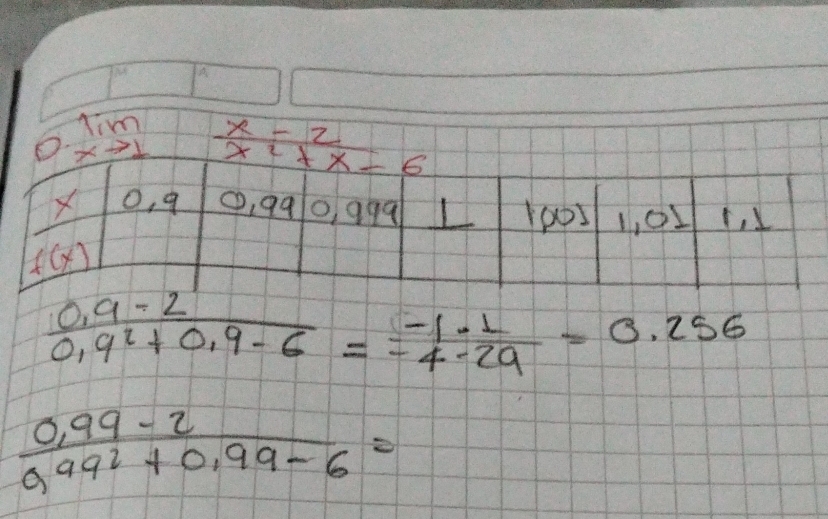 D. lim x→1 x - 2 / x² + x - 6
x 0,9 0,99 0,999 1 1,001 1,01 1,1
f(x)
0,9 - 2 / 0,9² + 0,9 - 6 = -1.1 / -4.29 = 0.256
0,99 - 2 / 0,99² + 0,99 - 6 =